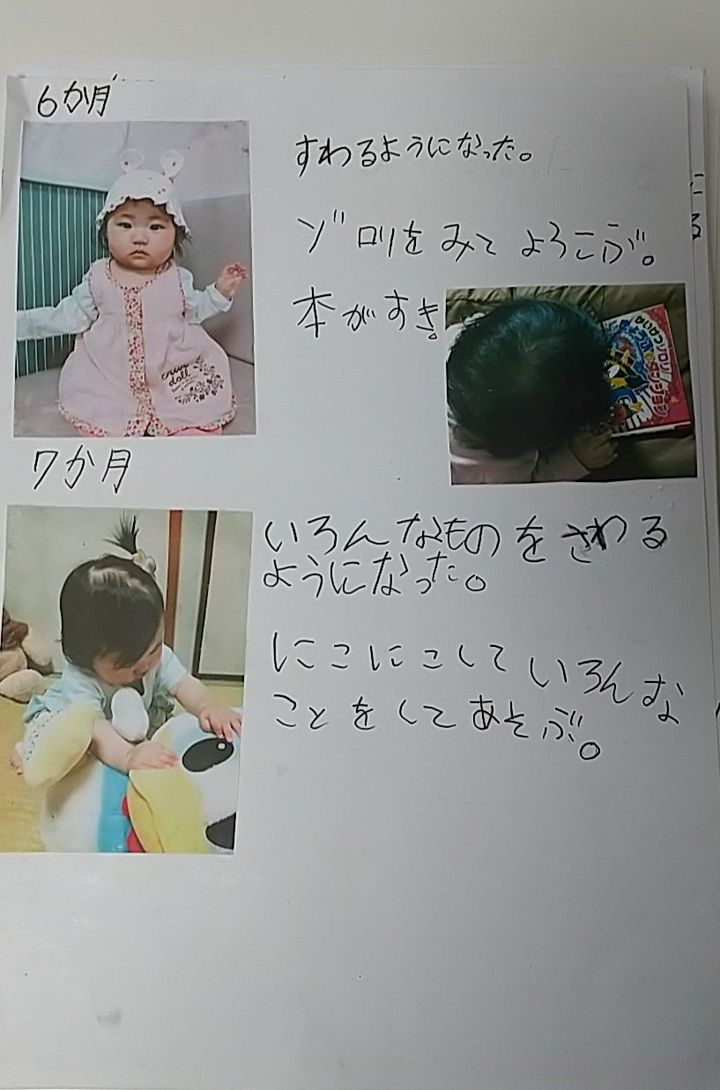 6か月
すわるようになった。
ゾロリをみてよろこぶ。
本がすき。
Doll
かいけつゾロリ
7か月
いろんなものをさわる
ようになった。
にこにこしていろんな
ことをしてあそぶ。